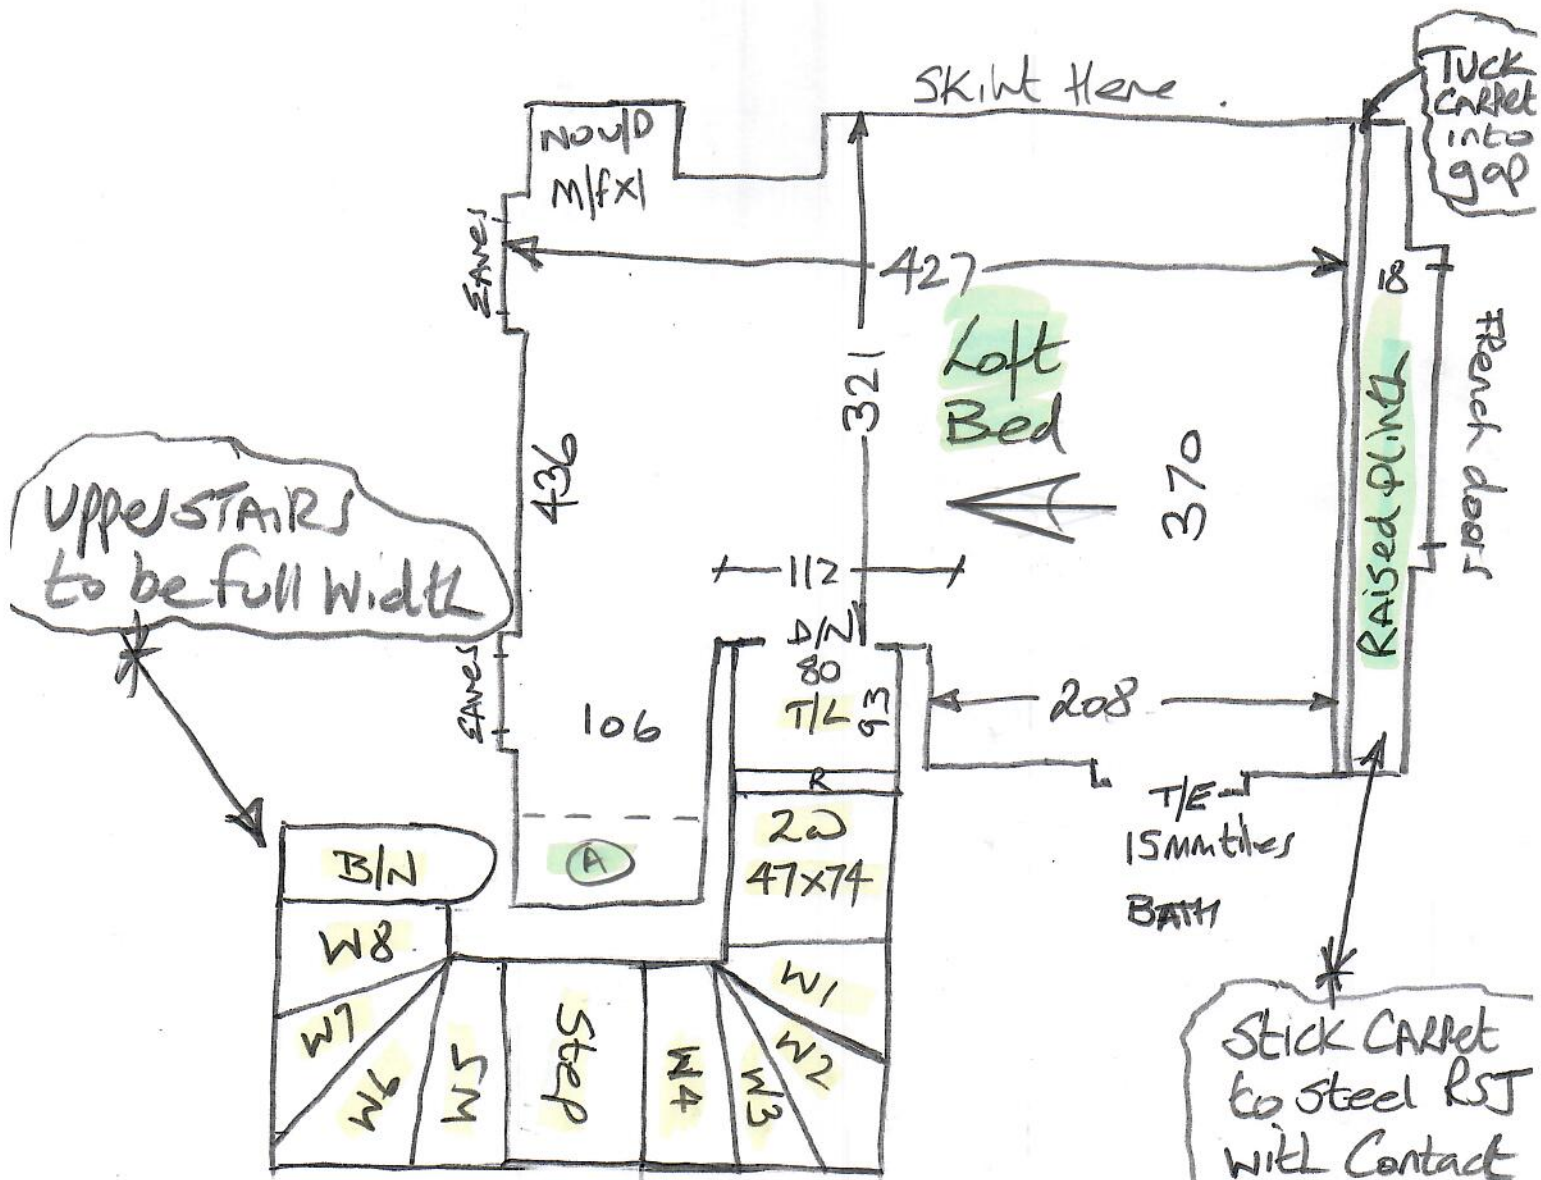 SKint Here .
TUCK
CARPET
into
gap
NO U/D
M/FX1
EAVES
427
18
Loft
Bed
321
French doors
Raised Plinth
436
370
UPPER STAIRS
to be full width
112
D/N
80
T/L
93
EAVES
106
208
R
2W
47x74
T/E
15mm tiles
BATH
A
B/N
W8
W7
W6
W5
Step
W4
W3
W2
W1
Stick CARPET
to steel RSJ
with Contact